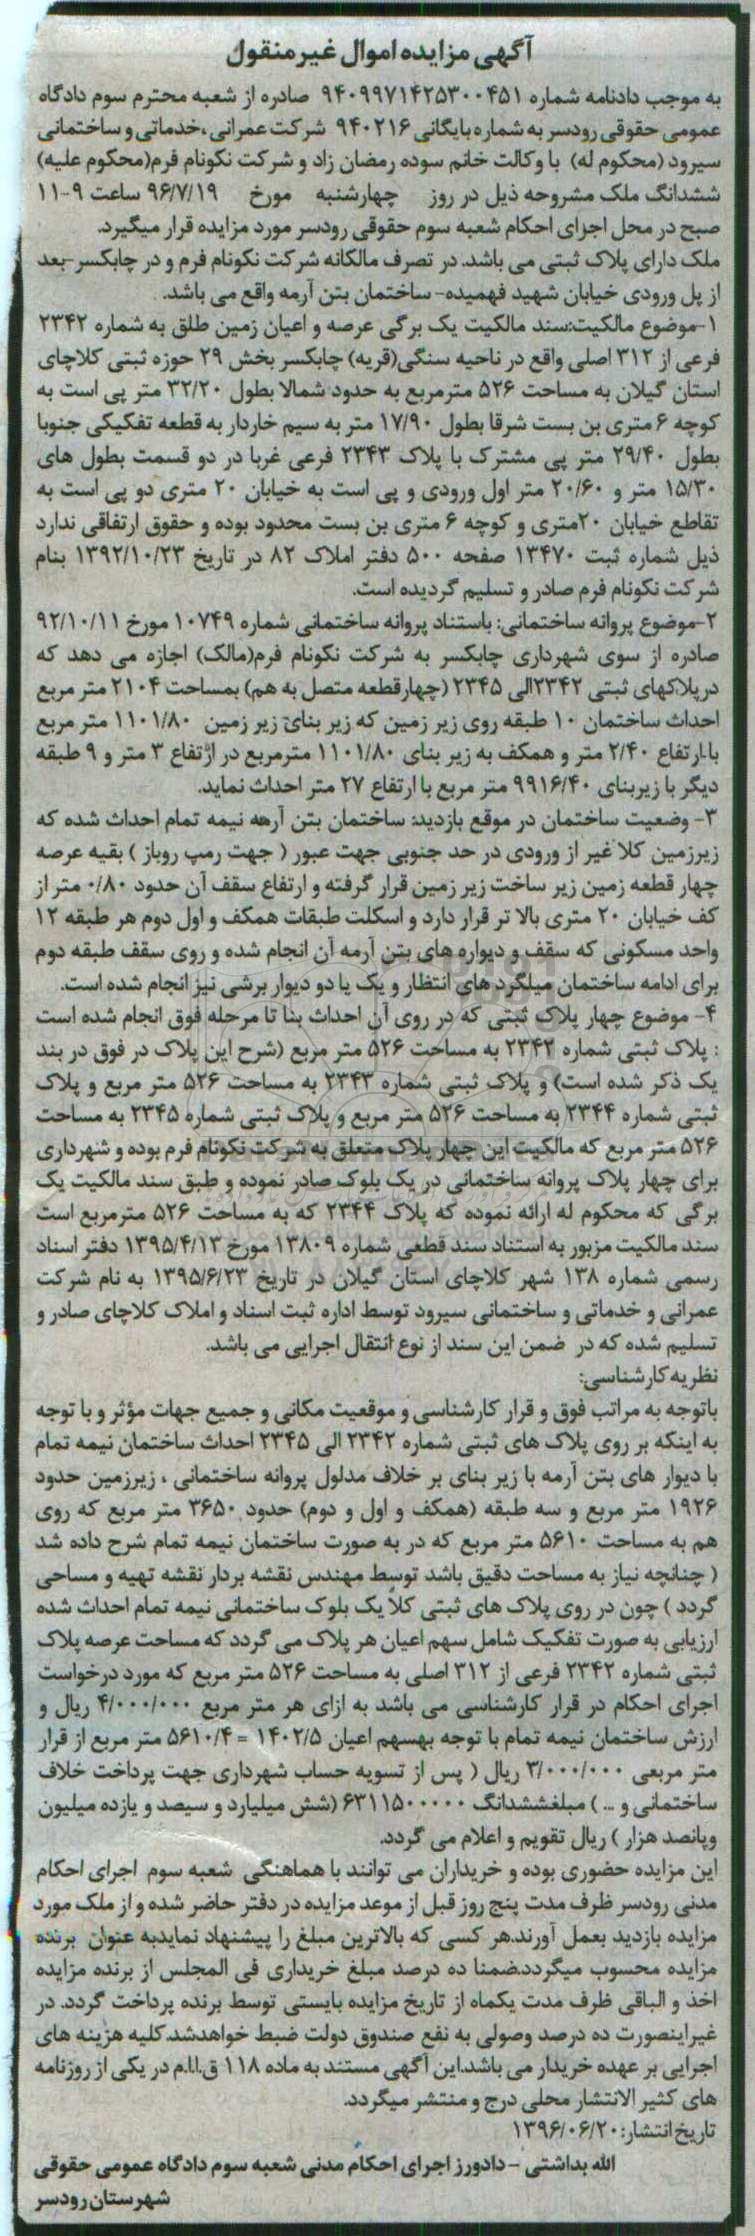 آگهی مزایده اموال غیرمنقول
به موجب دادنامه شماره ۹۴۰۹۹۷۱۴۲۵۳۰۰۴۵۱ صادره از شعبه محترم سوم دادگاه
عمومی حقوقی رودسر به شماره بایگانی ۹۴۰۲۱۶ شرکت عمرانی ،خدماتی و ساختمانی
سیرود (محکوم له) با وکالت خانم سوده رمضان زاد و شرکت نکونام فرم(محکوم علیه)
ششدانگ ملک مشروحه ذیل در روز چهارشنبه مورخ ۹۶/۷/۱۹ ساعت ۹-۱۱
صبح در محل اجرای احکام شعبه سوم حقوقی رودسر مورد مزایده قرار میگیرد.
ملک دارای پلاک ثبتی می باشد. در تصرف مالکانه شرکت نکونام فرم و در چابکسر-بعد
از پل ورودی خیابان شهید فهمیده- ساختمان بتن آرمه واقع می باشد.
۱-موضوع مالکیت:سند مالکیت یک برگی عرصه و اعیان زمین طلق به شماره ۲۳۴۲
فرعی از ۳۱۲ اصلی واقع در ناحیه سنگی(قریه) چابکسر بخش ۲۹ حوزه ثبتی کلاچای
استان گیلان به مساحت ۵۲۶ مترمربع به حدود شمالا بطول ۳۲/۲۰ متر پی است به
کوچه ۶ متری بن بست شرقا بطول ۱۷/۹۰ متر به سیم خاردار به قطعه تفکیکی جنوبا
بطول ۲۹/۴۰ متر پی مشترک با پلاک ۲۳۴۳ فرعی غربا در دو قسمت بطول های
۱۵/۳۰ متر و ۲۰/۶۰ متر اول ورودی و پی است به خیابان ۲۰ متری دو پی است به
تقاطع خیابان ۲۰متری و کوچه ۶ متری بن بست محدود بوده و حقوق ارتفاقی ندارد
ذیل شماره ثبت ۱۳۴۷۰ صفحه ۵۰۰ دفتر املاک ۸۲ در تاریخ ۱۳۹۲/۱۰/۲۳ بنام
شرکت نکونام فرم صادر و تسلیم گردیده است.
۲-موضوع پروانه ساختمانی: باستناد پروانه ساختمانی شماره ۱۰۷۴۹ مورخ ۹۲/۱۰/۱۱
صادره از سوی شهرداری چابکسر به شرکت نکونام فرم(مالک) اجازه می دهد که
درپلاکهای ثبتی ۲۳۴۲الی ۲۳۴۵ (چهارقطعه متصل به هم) بمساحت ۲۱۰۴ متر مربع
احداث ساختمان ۱۰ طبقه روی زیر زمین که زیر بنای زیر زمین ۱۱۰۱/۸۰ متر مربع
با ارتفاع ۲/۴۰ متر و همکف به زیر بنای ۱۱۰۱/۸۰ مترمربع در ارتفاع ۳ متر و ۹ طبقه
دیگر با زیربنای ۹۹۱۶/۴۰ متر مربع با ارتفاع ۲۷ متر احداث نماید.
۳- وضعیت ساختمان در موقع بازدید: ساختمان بتن آرمه نیمه تمام احداث شده که
زیرزمین کلا غیر از ورودی در حد جنوبی جهت عبور ( جهت رمپ روباز ) بقیه عرصه
چهار قطعه زمین زیر ساخت زیر زمین قرار گرفته و ارتفاع سقف آن حدود ۰/۸۰ متر از
کف خیابان ۲۰ متری بالا تر قرار دارد و اسکلت طبقات همکف و اول دوم هر طبقه ۱۲
واحد مسکونی که سقف و دیواره های بتن آرمه آن انجام شده و روی سقف طبقه دوم
برای ادامه ساختمان میلگرد های انتظار و یک یا دو دیوار برشی نیز انجام شده است.
۴- موضوع چهار پلاک ثبتی که در روی آن احداث بنا تا مرحله فوق انجام شده است
: پلاک ثبتی شماره ۲۳۴۲ به مساحت ۵۲۶ متر مربع (شرح این پلاک در فوق در بند
یک ذکر شده است) و پلاک ثبتی شماره ۲۳۴۳ به مساحت ۵۲۶ متر مربع و پلاک
ثبتی شماره ۲۳۴۴ به مساحت ۵۲۶ متر مربع و پلاک ثبتی شماره ۲۳۴۵ به مساحت
۵۲۶ متر مربع که مالکیت این چهار پلاک متعلق به شرکت نکونام فرم بوده و شهرداری
برای چهار پلاک پروانه ساختمانی در یک بلوک صادر نموده و طبق سند مالکیت یک
برگی که محکوم له ارائه نموده که پلاک ۲۳۴۴ که به مساحت ۵۲۶ مترمربع است
سند مالکیت مزبور به استناد سند قطعی شماره ۱۳۸۰۹ مورخ ۱۳۹۵/۴/۱۳ دفتر اسناد
رسمی شماره ۱۳۸ شهر کلاچای استان گیلان در تاریخ ۱۳۹۵/۶/۲۳ به نام شرکت
عمرانی و خدماتی و ساختمانی سیرود توسط اداره ثبت اسناد و املاک کلاچای صادر و
تسلیم شده که در ضمن این سند از نوع انتقال اجرایی می باشد.
نظریه کارشناسی:
باتوجه به مراتب فوق و قرار کارشناسی و موقعیت مکانی و جمیع جهات مؤثر و با توجه
به اینکه بر روی پلاک های ثبتی شماره ۲۳۴۲ الی ۲۳۴۵ احداث ساختمان نیمه تمام
با دیوار های بتن آرمه با زیر بنای بر خلاف مدلول پروانه ساختمانی ، زیرزمین حدود
۱۹۲۶ متر مربع و سه طبقه (همکف و اول و دوم) حدود ۳۶۵۰ متر مربع که روی
هم به مساحت ۵۶۱۰ متر مربع که در به صورت ساختمان نیمه تمام شرح داده شد
( چنانچه نیاز به مساحت دقیق باشد توسط مهندس نقشه بردار نقشه تهیه و مساحی
گردد ) چون در روی پلاک های ثبتی کلا یک بلوک ساختمانی نیمه تمام احداث شده
ارزیابی به صورت تفکیک شامل سهم اعیان هر پلاک می گردد که مساحت عرصه پلاک
ثبتی شماره ۲۳۴۲ فرعی از ۳۱۲ اصلی به مساحت ۵۲۶ متر مربع که مورد درخواست
اجرای احکام در قرار کارشناسی می باشد به ازای هر متر مربع ۴/۰۰۰/۰۰۰ ریال و
ارزش ساختمان نیمه تمام با توجه بهسهم اعیان ۱۴۰۲/۵ = ۵۶۱۰/۴ متر مربع از قرار
متر مربعی ۳/۰۰۰/۰۰۰ ریال ( پس از تسویه حساب شهرداری جهت پرداخت خلاف
ساختمانی و ... ) مبلغششدانگ ۶۳۱۱۵۰۰۰۰۰ (شش میلیارد و سیصد و یازده میلیون
وپانصد هزار ) ریال تقویم و اعلام می گردد.
این مزایده حضوری بوده و خریداران می توانند با هماهنگی شعبه سوم اجرای احکام
مدنی رودسر ظرف مدت پنج روز قبل از موعد مزایده در دفتر حاضر شده و از ملک مورد
مزایده بازدید بعمل آورند.هر کسی که بالاترین مبلغ را پیشنهاد نمایدبه عنوان برنده
مزایده محسوب میگردد.ضمنا ده درصد مبلغ خریداری فی المجلس از برنده مزایده
اخذ و الباقی ظرف مدت یکماه از تاریخ مزایده بایستی توسط برنده پرداخت گردد. در
غیراینصورت ده درصد وصولی به نفع صندوق دولت ضبط خواهدشد.کلیه هزینه های
اجرایی بر عهده خریدار می باشد.این آگهی مستند به ماده ۱۱۸ ق.ا.ا.م در یکی از روزنامه
های کثیر الانتشار محلی درج و منتشر میگردد.
تاریخ انتشار: ۱۳۹۶/۰۶/۲۰
الله بداشتی - دادورز اجرای احکام مدنی شعبه سوم دادگاه عمومی حقوقی
شهرستان رودسر